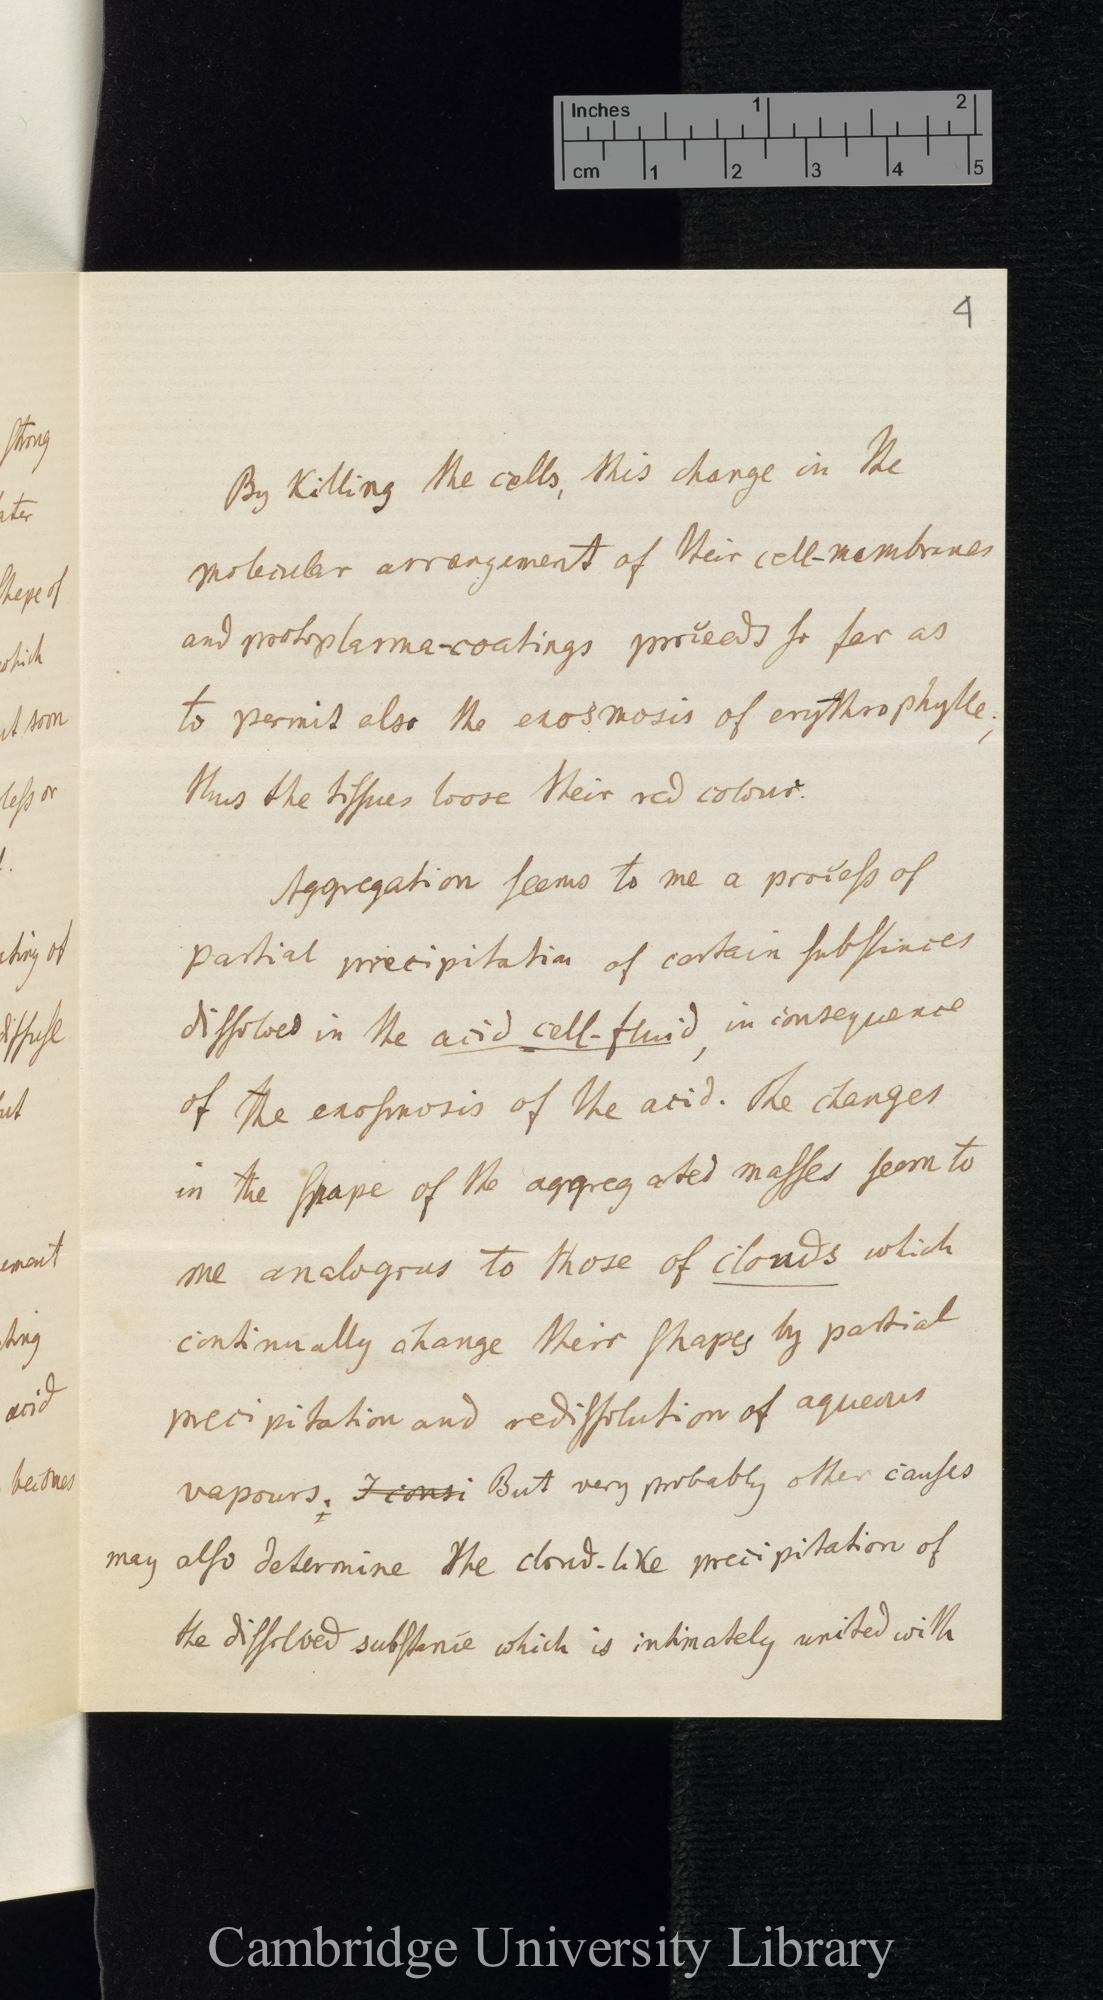 Inches 1 2
cm 1 2 3 4 5
4
strong
ater
shape of
which
ut soon
less or
diffuse
ut
ement
ting
acid
becomes
By Killing the cells, this change in the
molecular arrangement of their cell-membranes
and protoplasma-coatings proceeds so far as
to permit also the exosmosis of erythrophylle;
thus the tissues loose their red colour.
Aggregation seems to me a process of
partial precipitation of certain substances
dissolved in the acid cell-fluid, in consequence
of the exosmosis of the acid. The changes
in the shape of the aggregated masses seem to
me analogous to those of clouds which
continually change their shapes by partial
precipitation and redissolution of aqueous
vapours; I consi But very probably other causes
may also determine the cloud-like precipitation of
the dissolved substance which is intimately united with
Cambridge University Library